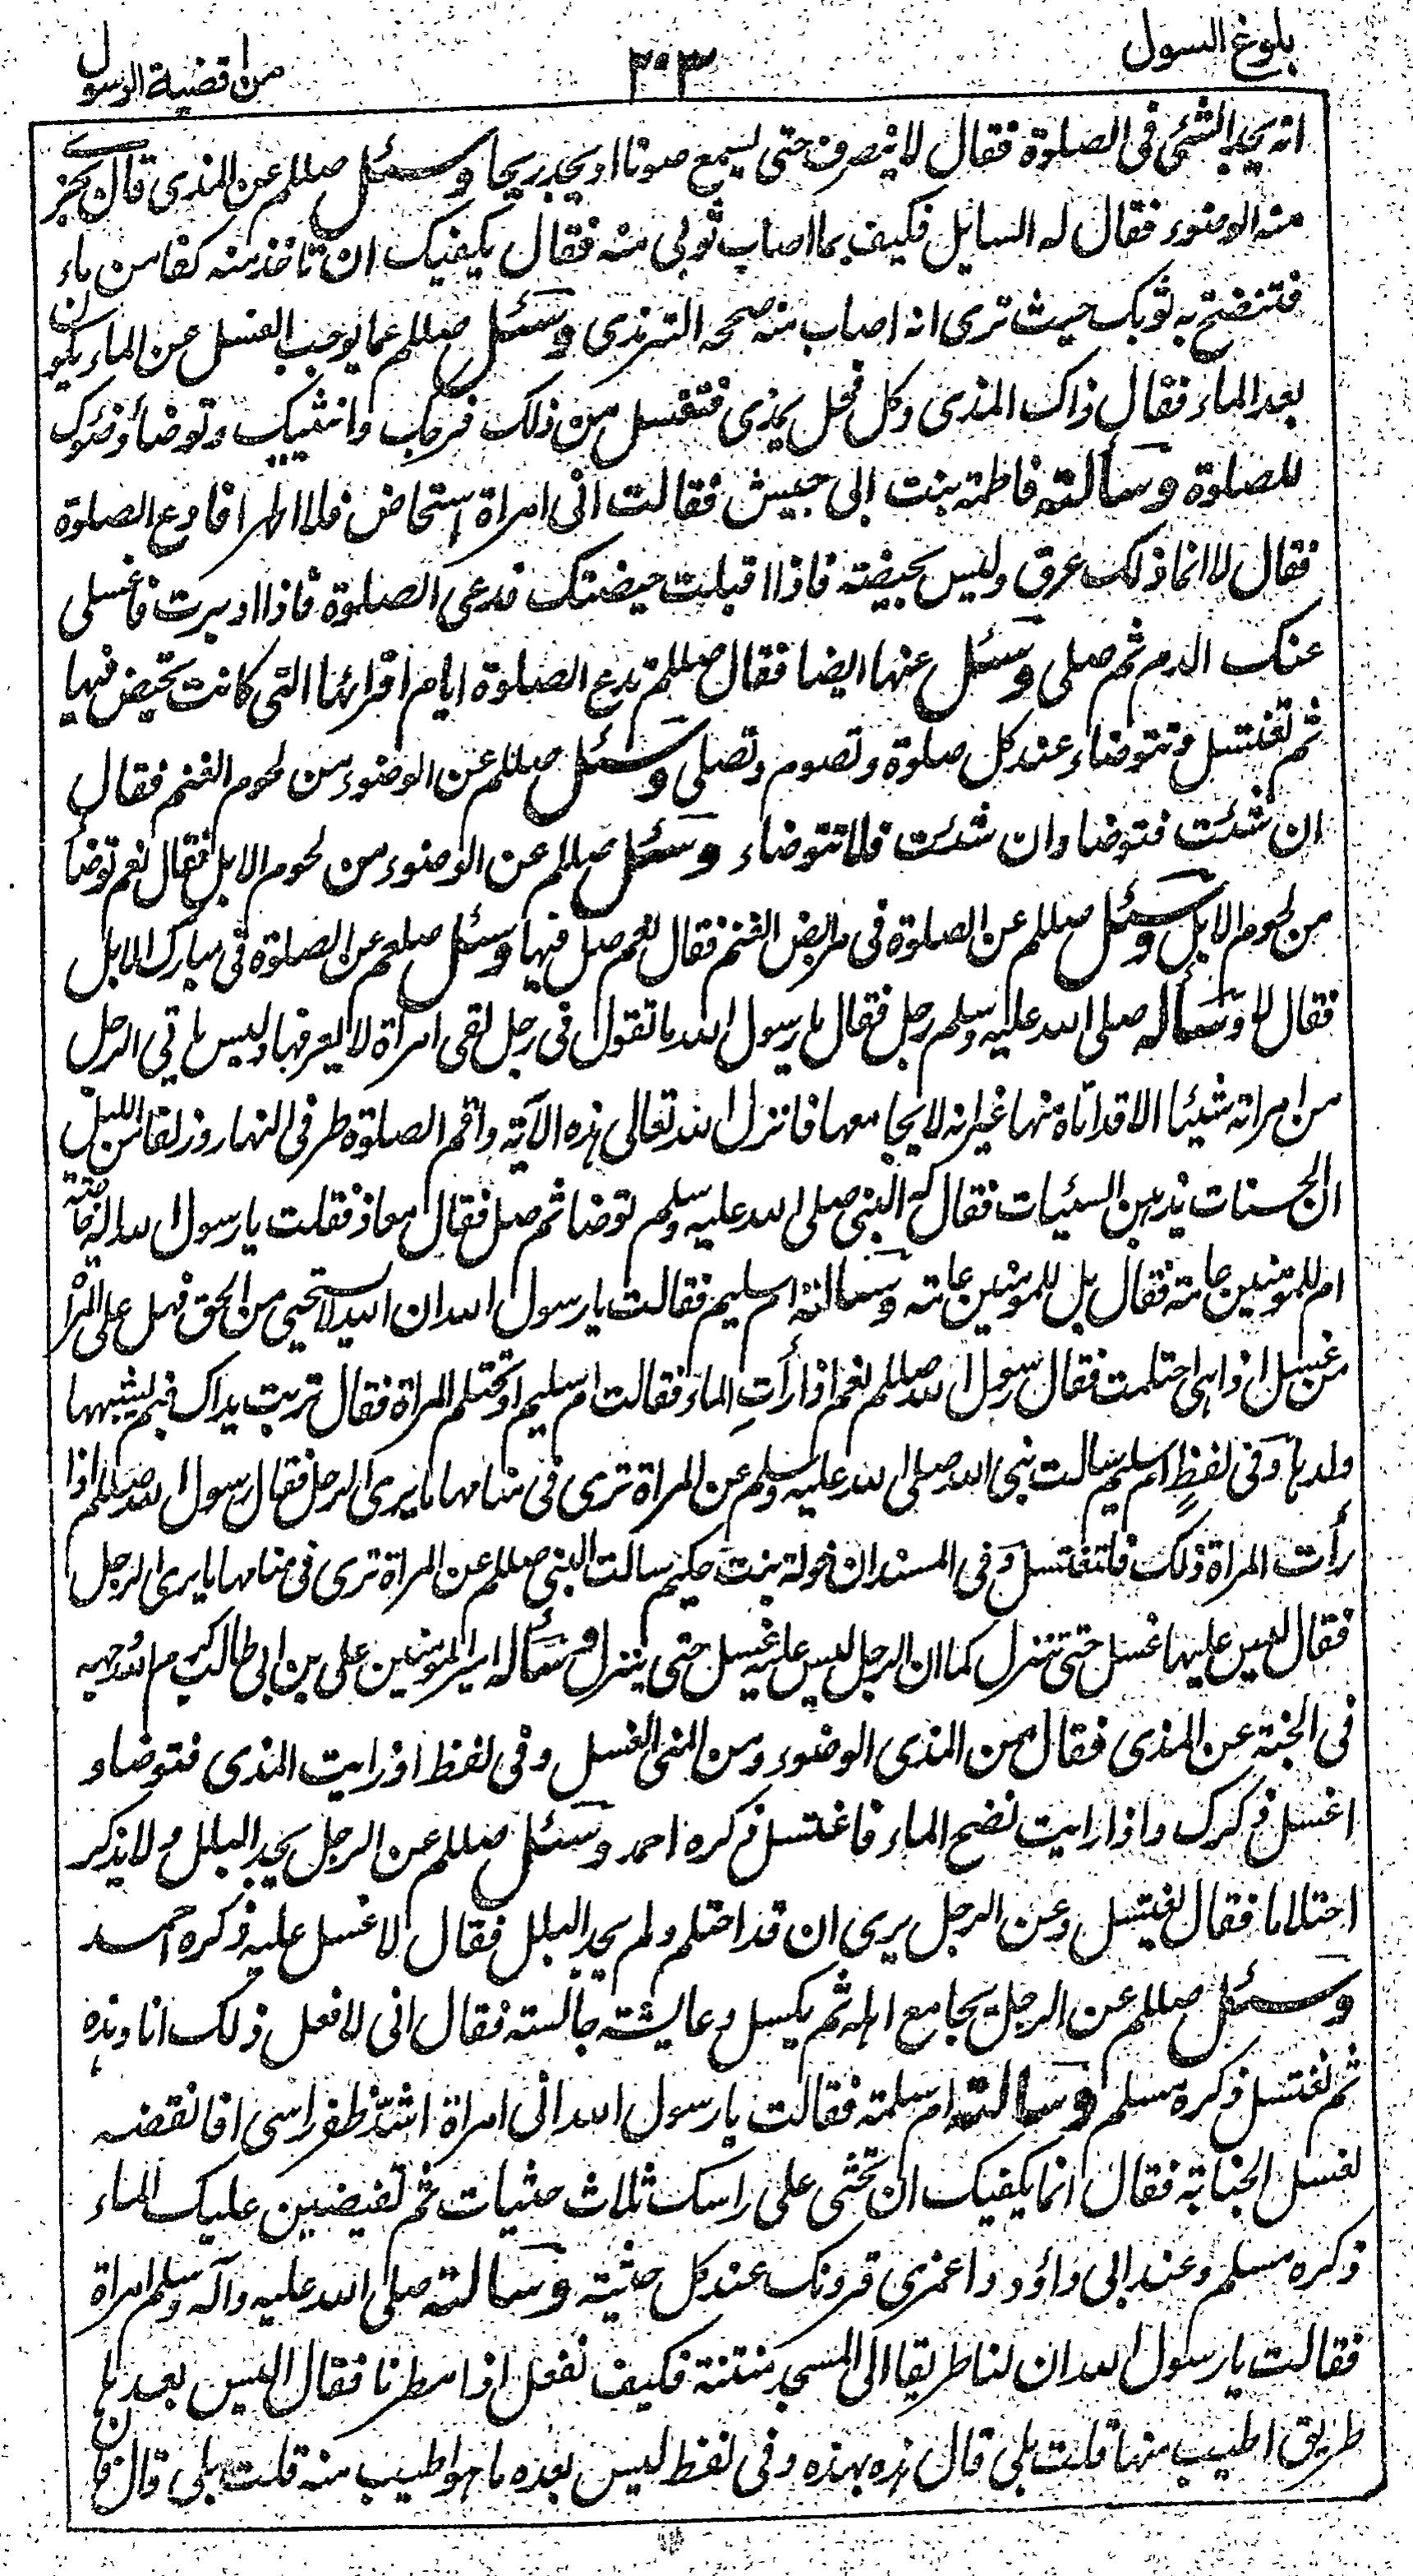 بلوغ السول
٣٠٣
من اقضية الرسول
انه يجد الشئ فى الصلوة فقال لا ينصرف حتى يسمع صوتا او يجد ريحا وسئل صللم عن المذى قال يجزى
منه الوضوء فقال له السايل فكيف بما اصاب ثوبى منه فقال يكفيك ان تاخذ منه كفا من ماء
فتنضح به ثوبك حيث ترى انه اصاب منه صححه الترمذى وسئل صللم عما يوجب الغسل عن الماء يكون
بعد الماء فقال ذاك المذى وكل فحل يمذى فتغسل من ذلك فرجك وانثييك وتوضأ وضوئك
للصلوة وسألته فاطمة بنت ابى حبيش فقالت انى امراة استحاض فلا اطهر افادع الصلوة
فقال لا انما ذلك عرق وليس بحيضة فاذا اقبلت حيضتك فدعى الصلوة فاذا ادبرت فاغسلى
عنك الدم ثم صلى وسئل عنها ايضا فقال صللم تدع الصلوة ايام اقرائها التى كانت تحيض فيها
ثم تغتسل وتتوضاء عند كل صلوة وتصوم وتصلى وسئل صللم عن الوضوء من لحوم الغنم فقال
ان شئت فتوضا وان شئت فلا تتوضاء وسئل صللم عن الوضوء من لحوم الابل فقال نعم توضأ
من لحوم الابل وسئل صللم عن الصلوة فى مرابض الغنم فقال نعم صل فيها وسئل صلعم عن الصلوة فى مبارك الابل
فقال لا وسأله صلى الله عليه وسلم رجل فقال يا رسول الله ما تقول فى رجل لقى امراة لا يعرفها وليس ياتى الرجل
من امراته شيئا الا قد اتاه منها غير انه لا يجامعها فانزل الله تعالى هذه الآية واقم الصلوة طرفى النهار وزلفا من الليل
ان الحسنات يذهبن السئيات فقال له النبى صلى الله عليه وسلم توضا ثم صل فقال معاذ فقلت يا رسول الله اله خاصة
ام للمؤمنين عامة فقال بل للمؤمنين عامة وسألته ام سليم فقالت يا رسول الله ان الله لا يستحيى من الحق فهل على المرأة
من غسل اذا هى احتلمت فقال رسول الله صللم نعم اذا رأتِ الماء فقالت ام سليم او تحتلم المراة فقال تربت يداك فبم يشبهها
ولدها وفى لفظٍ ام سليم سالت نبى الله صلى الله عليه وسلم عن المراة ترى فى منامها ما يرى الرجل فقال رسول الله صللم اذا
رأت المراة ذلك فلتغتسل وفى المسند ان خولة بنت حكيم سالت النبى صللم عن المراة ترى فى منامها ما يرى الرجل
فقال ليس عليها غسل حتى تنزل كما ان الرجل ليس عليه غسل حتى ينزل وسأله امير المؤمنين على بن ابى طالب كرم الله وجهه
فى الجنة عن المذى فقال من المذى الوضوء ومن المنى الغسل وفى لفظ اذ رايت المذى فتوضا و
اغسل ذكرك واذا رايت نضح الماء فاغتسل ذكره احمد وسئل صللم عن الرجل يجد البلل ولا يذكر
احتلاما فقال يغتسل وعن الرجل يرى ان قد احتلم ولم يجد البلل فقال لا غسل عليه ذكره احمد
وسئل صللم عن الرجل يجامع اهله ثم يكسل وعايشة جالسة فقال انى لافعل ذلك انا وهذه
ثم نغتسل ذكره مسلم وسالته ام سلمة فقالت يا رسول الله انى امراة اشدّ ظفر راسى افانقضه
لغسل الجنابة فقال انما يكفيك ان تحثى على راسك ثلاث حثيات ثم تفيضين عليك الماء
ذكره مسلم وعند ابى داؤد واغمزى قرونك عند كل حثية وسالته صلى الله عليه وآله وسلم امراة
فقالت يا رسول الله ان لنا طريقا الى المسجد منتنة فكيف نفعل اذا مطرنا فقال اليس بعدها
طريق اطيب منها قلت بلى قال هذه بهذه وفى لفظ ليس بعده ما هو اطيب منه قلت بلى قال فان